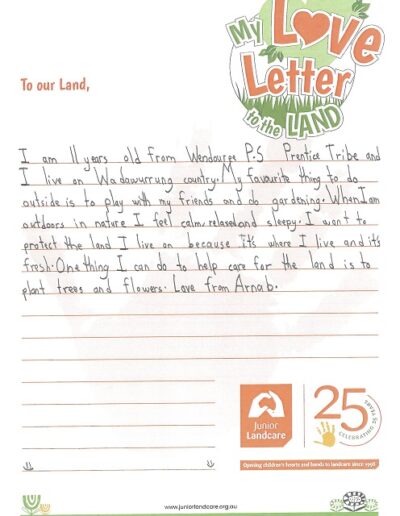 My Love
Letter
to the LAND
To our Land,
I am 11 years old from Wendouree P.S Prentice Tribe and
I live on Wadawurrung country. My favourite thing to do
outside is to play with my friends and do gardening. When I am
outdoors in nature I feel calm, relaxed and sleepy. I want to
protect the land I live on because it's where I live and it's
fresh. One thing I can do to help care for the land is to
plant trees and flowers. Love from Arnab.
Junior
Landcare
25 YEARS
CELEBRATING
Opening children's hearts and hands to landcare since 1998
www.juniorlandcare.org.au